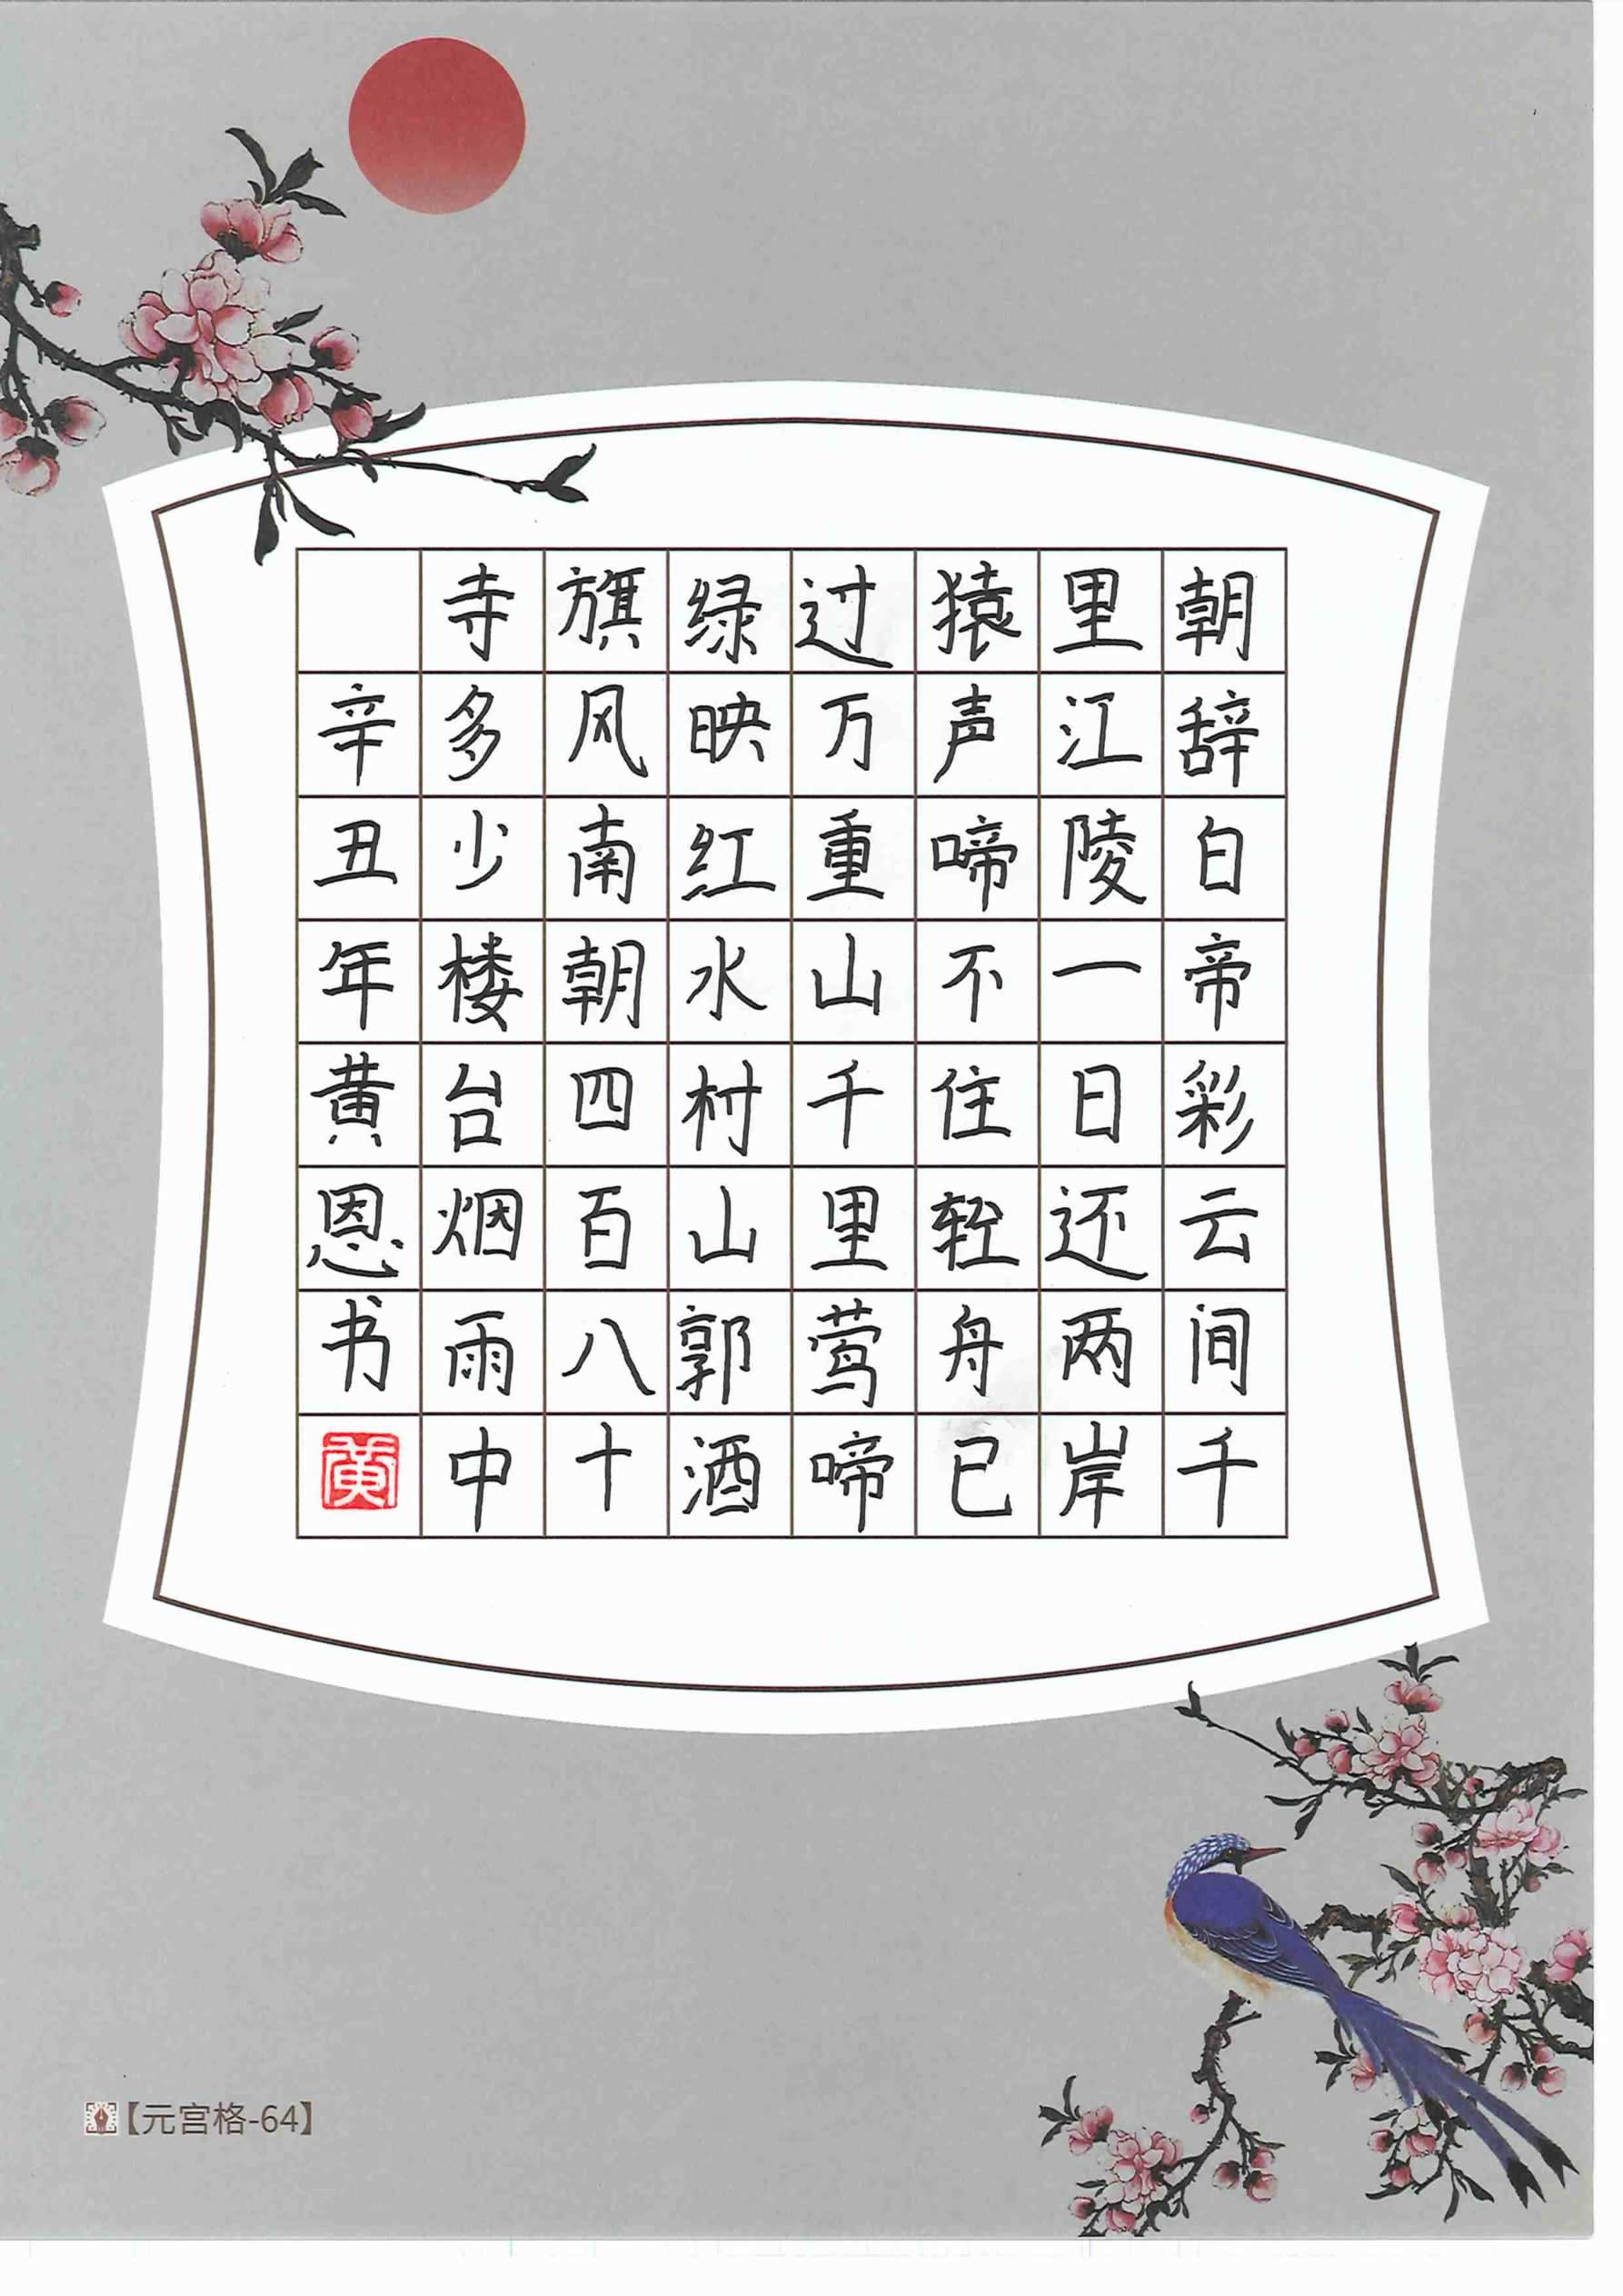 朝辞白帝彩云间千
里江陵一日还两岸
猿声啼不住轻舟已
过万重山千里莺啼
绿映红水村山郭酒
旗风南朝四百八十
寺多少楼台烟雨中
辛丑年黄恩书
黄
【元宫格-64】